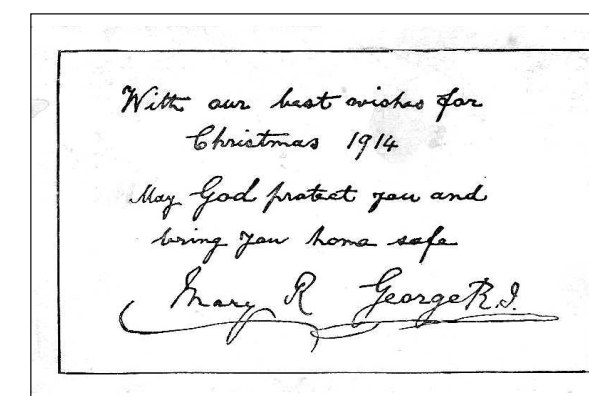 With our best wishes for
Christmas 1914
May God protect you and
bring you home safe
Mary R George R.I.